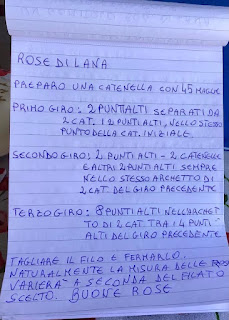 ROSE DI LANA
PREPARO UNA CATENELLA CON 45 MAGLIE
PRIMO GIRO: 2 PUNTI ALTI SEPARATI DA
2 CAT. I 2 P.TI ALTI, NELLO STESSO
PUNTO DELLA CAT. INIZIALE.
SECONDO GIRO: 2 PUNTI ALTI - 2 CATENELLE
E ALTRI 2 PUNTI ALTI SEMPRE
NELLO STESSO ARCHETTO DI
2 CAT DEL GIRO PRECEDENTE
TERZO GIRO: 8 PUNTI ALTI NELL'ARCHET
TO DI 2 CAT. TRA I 4 PUNTI
ALTI DEL GIRO PRECEDENTE
TAGLIARE IL FILO E FERMARLO.
NATURALMENTE LA MISURA DELLE ROSE
VARIERA' A SECONDA DEL FILATO
SCELTO. BUONE ROSE